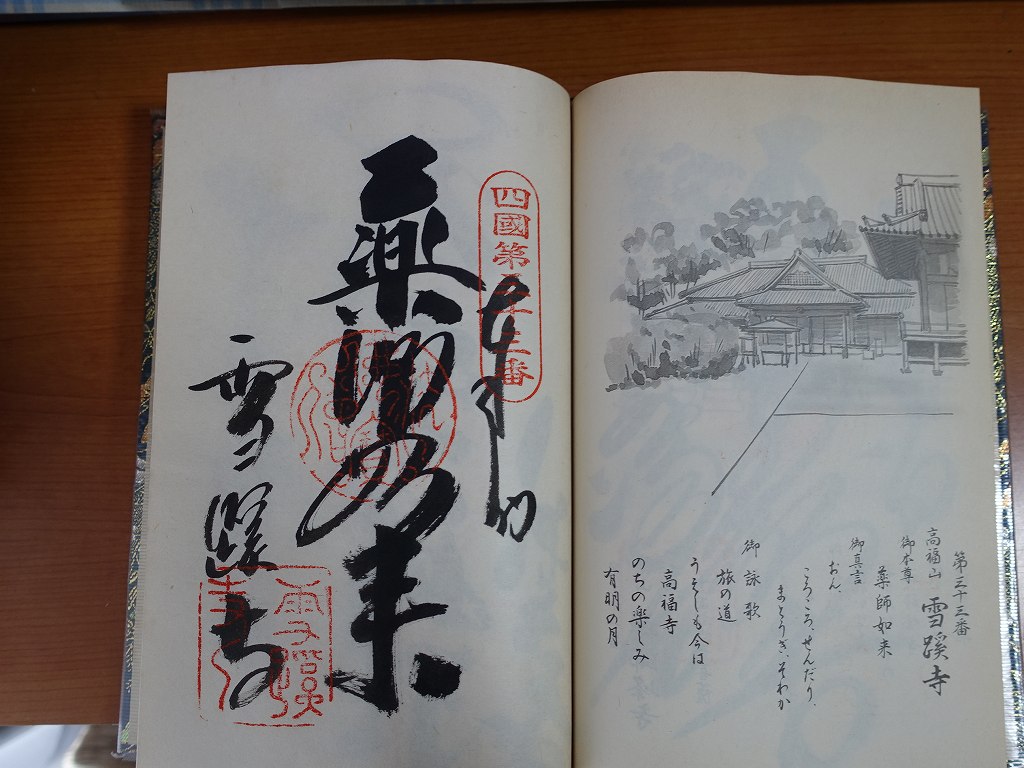 第三十三番
高福山 雪蹊寺
御本尊
薬師如来
御真言
おん、
ころころ、せんだり、
まとうぎ、そわか
御詠歌
旅の道
うえしも今は
高福寺
のちの楽しみ
有明の月
四國第三十三番
奉納
薬師如来
雪蹊寺
雪蹊